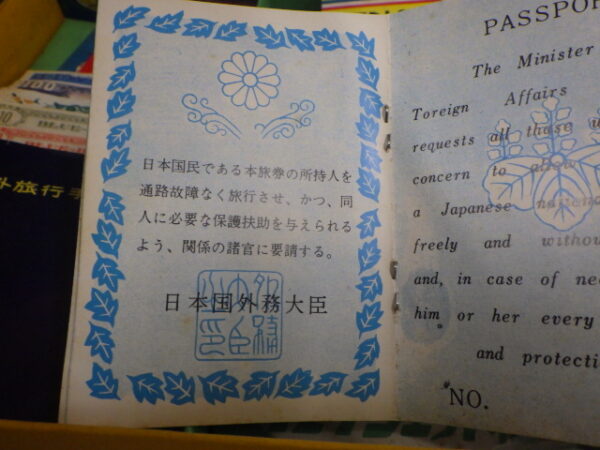 日本国民である本旅券の所持人を
通路故障なく旅行させ、かつ、同
人に必要な保護扶助を与えられる
よう、関係の諸官に要請する。
日本国外務大臣
PASSPOR
The Minister
Toreign Affairs
requests all those
concern to allow
a Japanese national
freely and withou
and, in case of nee
him or her every
and protecti
NO.
外旅行